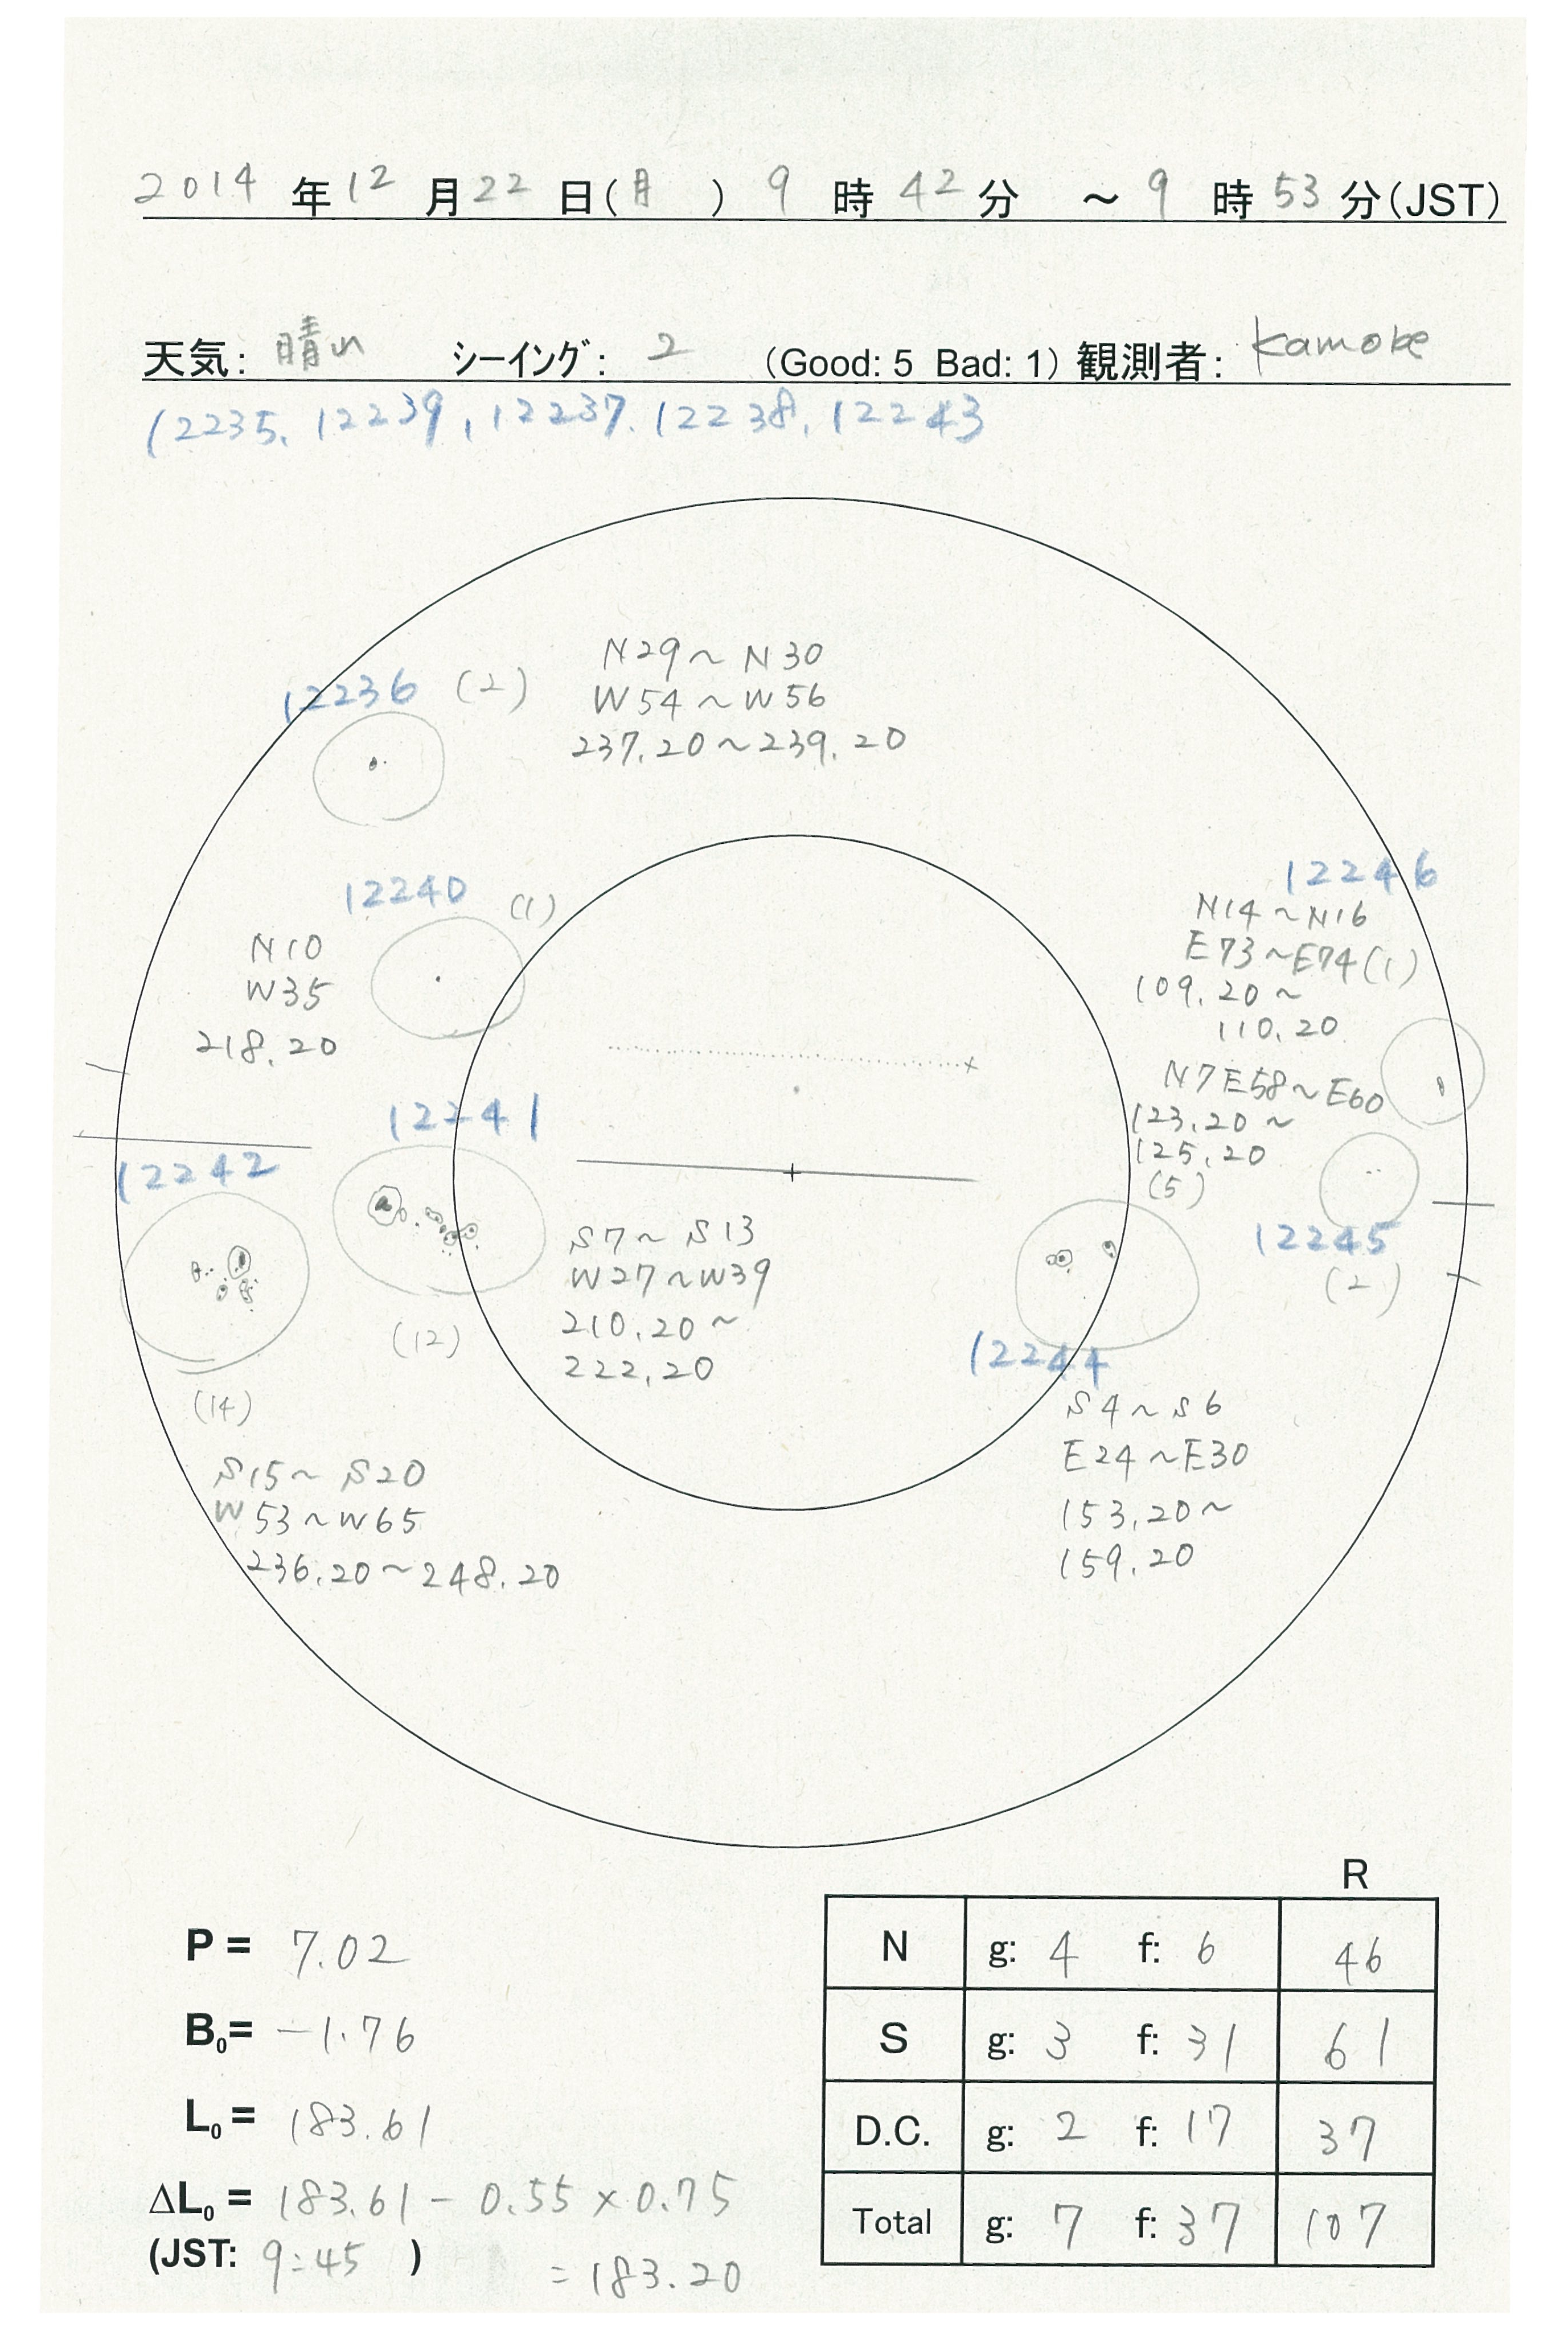 2014 年 12 月 22 日(月 ) 9 時 42 分 ~ 9 時 53 分(JST)
天気: 晴れ シーイング: 2 (Good: 5 Bad: 1) 観測者: Kamobe
12235, 12239, 12237, 12238, 12243
N29~N30
12236 (2)
W54~W56
237.20~239.20
12246
12240 (1)
N14~N16
N10
E73~E74(1)
W35
109.20~
218.20
110.20
N7E58~E60
12241
123.20~
12242
125.20
(5)
S7~S13
12245
W27~W39
(2)
210.20~
(12)
222.20
12244
(14)
S4~S6
S15~S20
E24~E30
W53~W65
153.20~
236.20~248.20
159.20
R
P = 7.02
N g: 4 f: 6 46
B₀= -1.76
S g: 3 f: 31 61
L₀ = 183.61
D.C. g: 2 f: 17 37
ΔL₀ = 183.61 - 0.55 × 0.75
Total g: 7 f: 37 107
(JST: 9:45 )
= 183.20